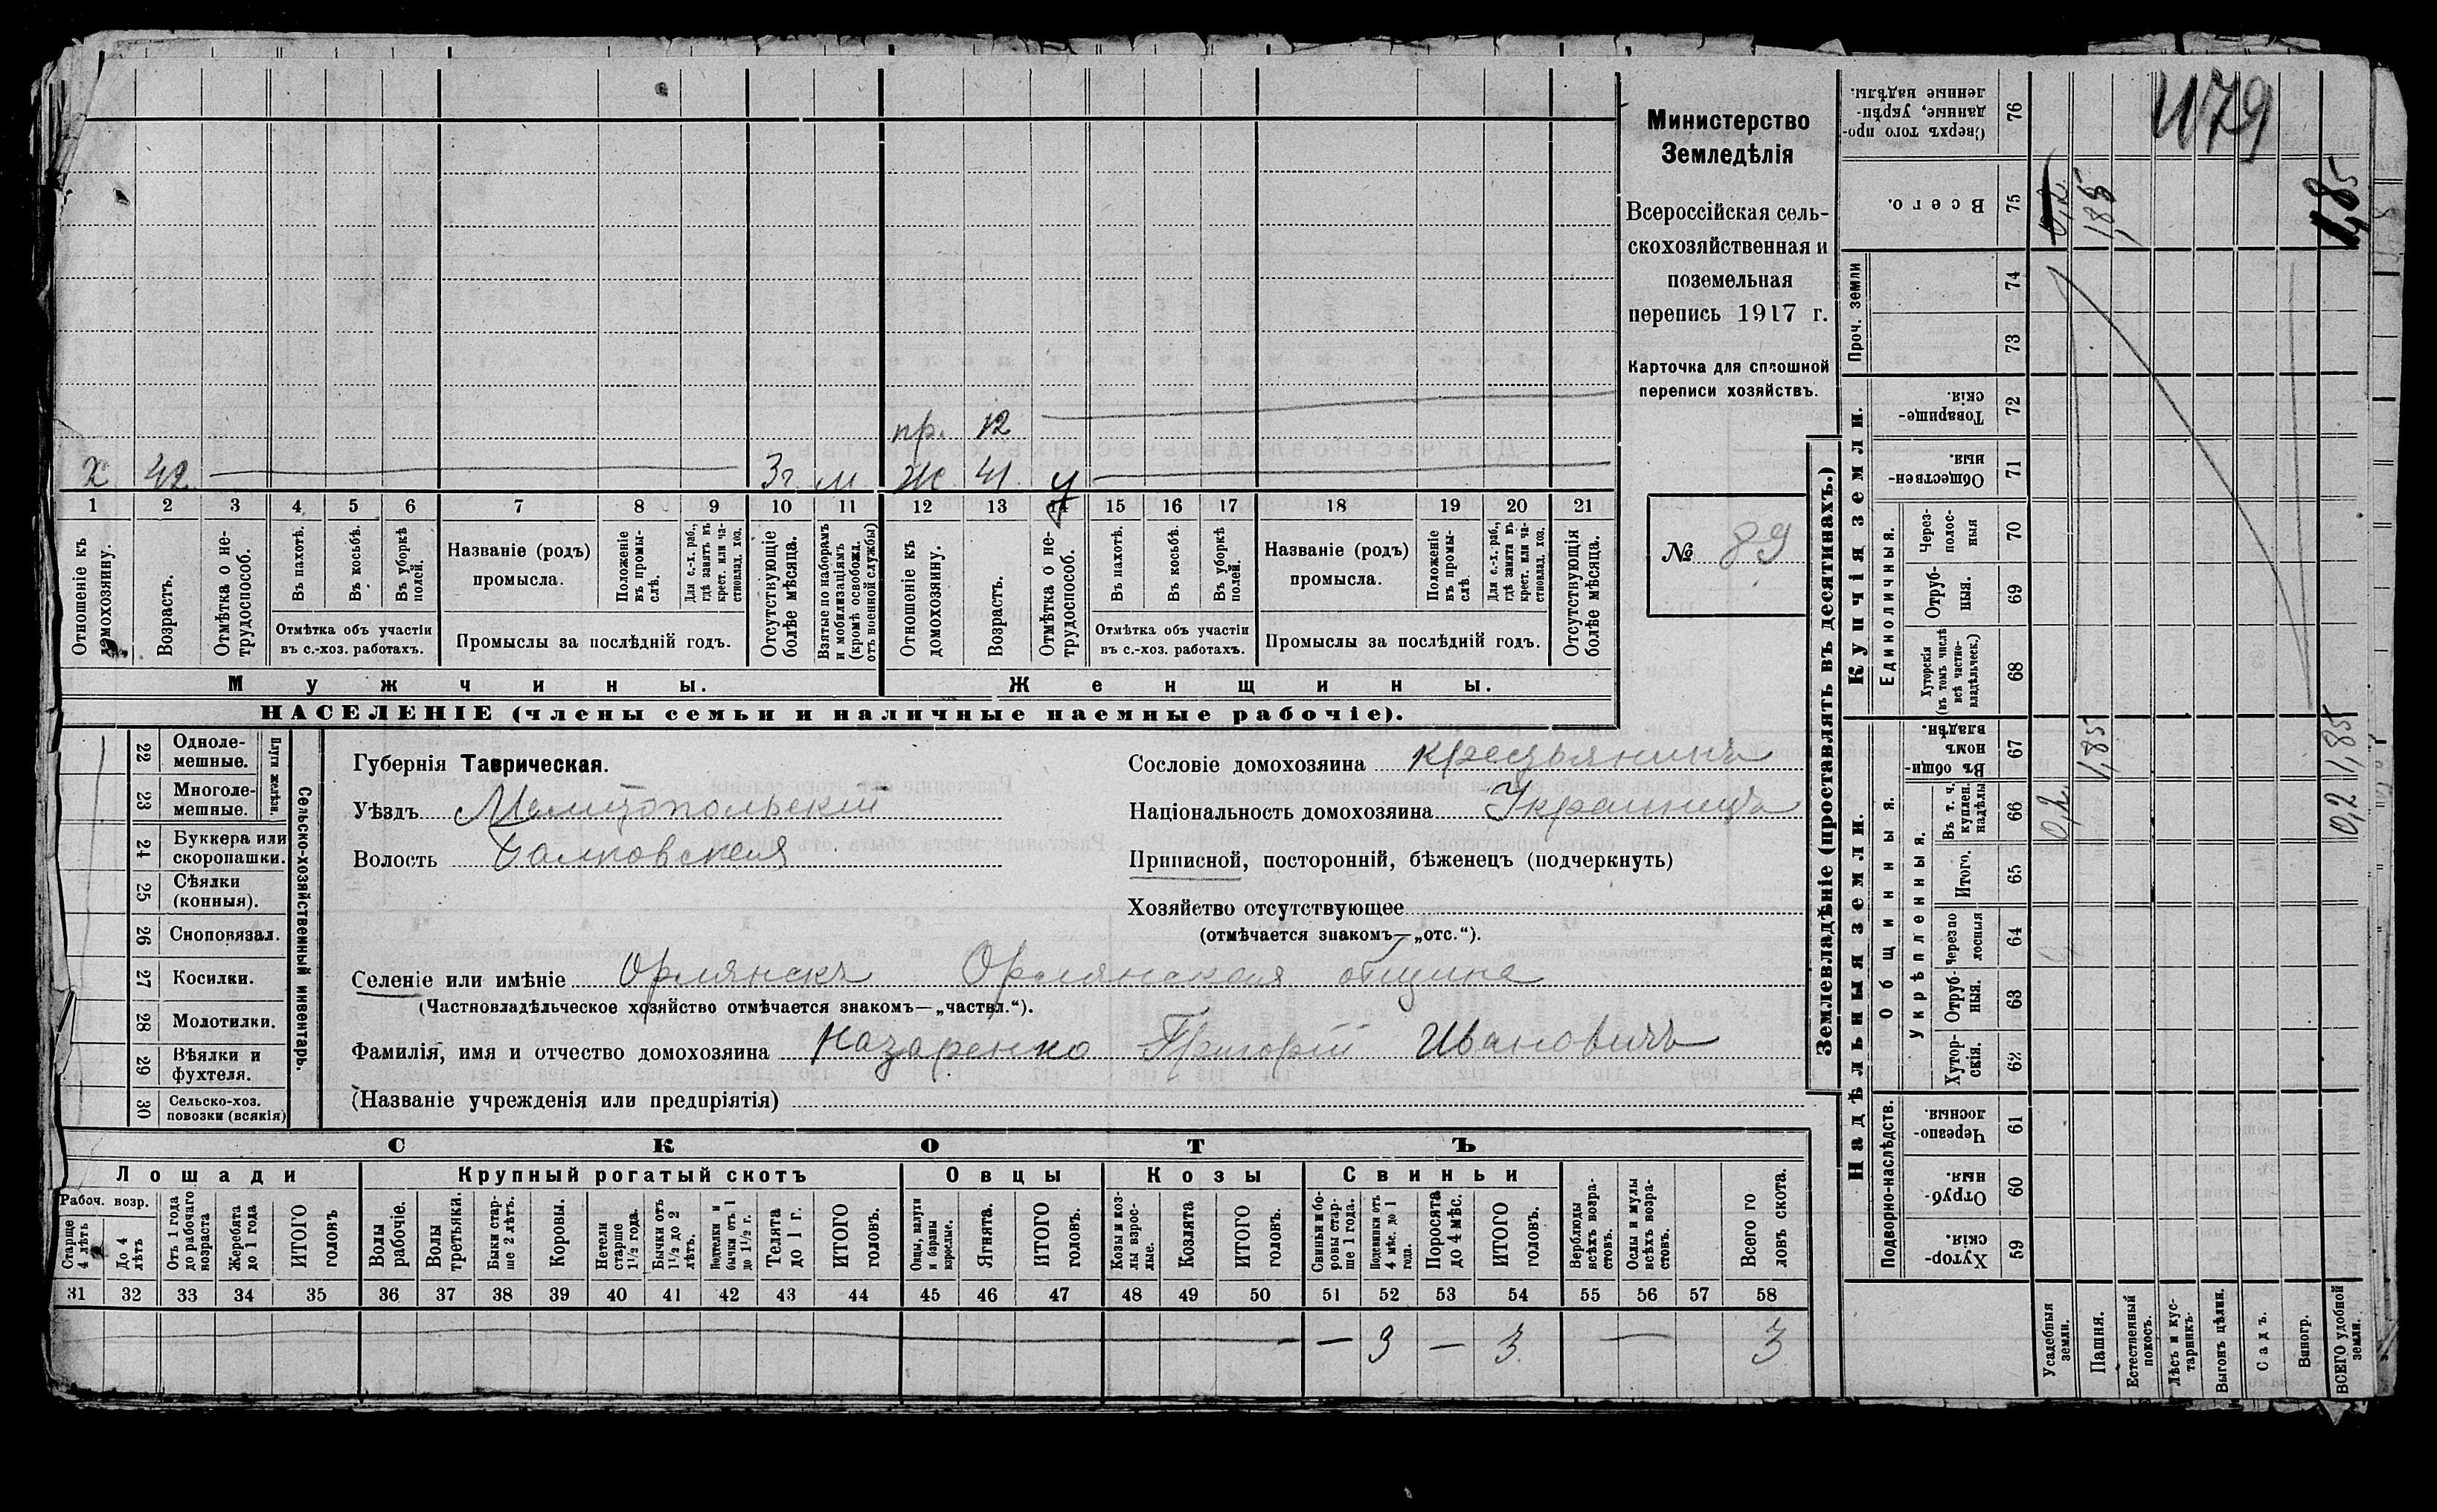 1179
Министерство
Земледѣлія
Всероссійская сель-
скохозяйственная и
поземельная
перепись 1917 г.
Карточка для сплошной
переписи хозяйствъ.
№ 89
пр. 12
х 42 3г. м Ж 41
1 2 3 4 5 6 7 8 9 10 11 12 13 14 15 16 17 18 19 20 21
Отношеніе къ домохозяину.
Возрастъ.
Отмѣтка о не-трудоспособ.
Въ пахотѣ.
Въ косьбѣ.
Въ уборкѣ полей.
Отмѣтка объ участіи
въ с.-хоз. работахъ.
Названіе (родъ)
промысла.
Положеніе въ промы-слѣ.
Для с.-х. раб., гдѣ занятъ въ крест. или ча-стновлад. хоз.
Промыслы за послѣдній годъ.
Отсутствующіе болѣе мѣсяца.
Взятые по наборамъ и мобилизаціямъ (кромѣ освобожд. отъ военной службы)
Отношеніе къ домохозяину.
Возрастъ.
Отмѣтка о не-трудоспособ.
Въ пахотѣ.
Въ косьбѣ.
Въ уборкѣ полей.
Отмѣтка объ участіи
въ с.-хоз. работахъ.
Названіе (родъ)
промысла.
Положеніе въ промы-слѣ.
Для с.-х. раб., гдѣ занята въ крест. или ча-стновлад. хоз.
Промыслы за послѣдній годъ.
Отсутствующія болѣе мѣсяца.
Мужчины.
Женщины.
НАСЕЛЕНІЕ (члены семьи и наличные наемные рабочіе).
22 Одноле-мешные.
23 Многоле-мешные.
Плуги желѣзн.
24 Буккера или скоропашки.
25 Сѣялки (конныя).
26 Сноповязал.
27 Косилки.
28 Молотилки.
29 Вѣялки и фухтеля.
30 Сельско-хоз. повозки (всякія)
Сельско-хозяйственный инвентарь.
Губернія Таврическая.
Уѣздъ Мелитопольскій
Волость Балковская
Сословіе домохозяина крестьянинъ
Національность домохозяина Украинецъ
Приписной, посторонній, бѣженецъ (подчеркнуть)
Хозяйство отсутствующее
(отмѣчается знакомъ—„отс.“).
Селеніе или имѣніе Орлянскъ Орлянская община
(Частновладѣльческое хозяйство отмѣчается знакомъ—„частвл.“).
Фамилія, имя и отчество домохозяина Назаренко Григорій Ивановичъ
(Названіе учрежденія или предпріятія)
СКОТЪ
Лошади
Крупный рогатый скотъ
Овцы
Козы
Свиньи
Рабоч. возр.
Старше 4 лѣтъ
До 4 лѣтъ
Отъ 1 года до рабочаго возраста
Жеребята до 1 года
ИТОГО головъ
Волы рабочіе.
Волы третьяки.
Быки стар-ше 2 лѣтъ.
Коровы.
Нетели старше 1½ года.
Бычки отъ 1½ до 2 лѣтъ.
Подтелки и бычки отъ 1 до 1½ г.
Телята до 1 г.
ИТОГО головъ.
Овцы, валухи и бараны взрослые.
Ягнята.
ИТОГО головъ.
Козы и коз-лы взрос-лые.
Козлята
ИТОГО головъ.
Свиньи и бо-ровы стар-ше 1 года.
Подсвинки отъ 4 мѣс. до 1 года.
Поросята до 4 мѣс.
ИТОГО головъ.
Верблюды всѣхъ возра-стовъ.
Ослы и мулы всѣхъ возра-стовъ.
Всего го ловъ скота.
31 32 33 34 35 36 37 38 39 40 41 42 43 44 45 46 47 48 49 50 51 52 53 54 55 56 57 58
— 3 — 3 — 3
Землевладѣніе (проставлять въ десятинахъ.)
Надѣльныя земли.
Купчія земли.
Проч. земли
Подворно-наслѣдств.
Общинныя.
Укрѣпленныя.
Единоличныя.
Сверхъ того про-данные, укрѣп-ленные надѣлы. 76
Всего. 75 1,85 1,85
74
73
Товарище-скія. 72
Обществен-ныя. 71
Через-полос-ныя 70
Отруб-ныя. 69
Хуторскія (въ томъ числѣ всѣ частно-владѣльческ.) 68
Въ общи-номъ владѣн. 67 1,85 1,85
Въ т. ч. куплен. надѣлы 66 0,2 0,2
Итого. 65
Черезпо лосныя 64
Отруб-ныя. 63
Хутор-скія. 62
Черезпо-лосныя. 61
Отруб-ныя. 60
Хутор-скія. 59
Усадебныя земли.
Пашня.
Естественный покосъ.
Лѣсъ и кус-тарникъ.
Выгонъ цѣлин.
Садъ.
Виногр.
ВСЕГО удобной земли.